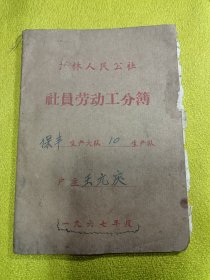 林人民公社
社員劳动工分簿
保丰生产大队10生产队
户主王元庆
一九六七年度